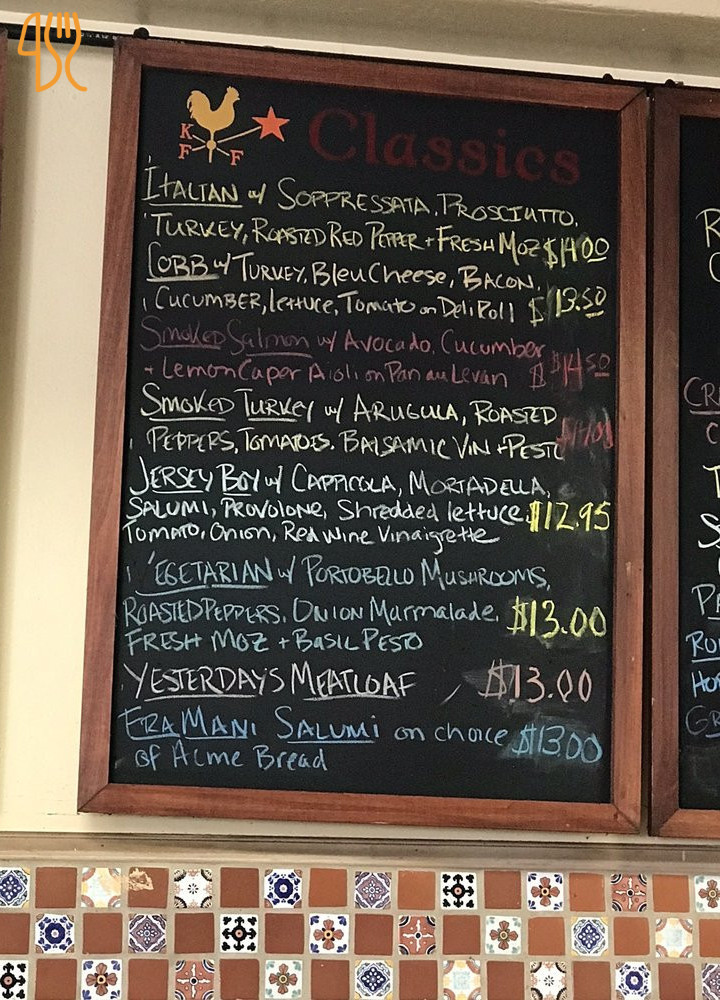 K
F F
Classics
ITALIAN w/ SOPPRESSATA, PROSCIUTTO,
TURKEY, ROASTED RED PEPPER + FRESH MOZ $14.00
COBB w/ TURKEY, Bleu Cheese, BACON,
CUCUMBER, lettuce, Tomato on Deli Roll $13.50
Smoked Salmon w/ Avocado, Cucumber
+ Lemon Caper Aioli on Pan au Levan $14.50
SMOKED TURKEY w/ ARUGULA, ROASTED
PEPPERS, TOMATOES, BALSAMIC VIN + PESTO
JERSEY BOY w/ CAPPICOLA, MORTADELLA,
SALUMI, PROVOLONE, Shredded lettuce, $12.95
Tomato, Onion, Red Wine Vinaigrette
VEGETARIAN w/ PORTOBELLO MUSHROOMS,
ROASTED PEPPERS, ONION Marmalade, $13.00
FRESH MOZ + BASIL PESTO
YESTERDAY'S MEATLOAF $13.00
FRA'MANI SALUMI on choice $13.00
of Acme Bread